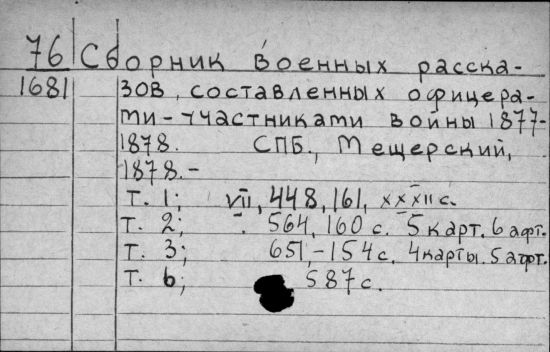 76 Сборник военных расска-
1681 зов, составленных офицера-
ми-участниками войны 1877-
1878. СПБ., Мещерский,
1878.-
т. 1; VII, 448, 161, XXXII с.
т. 2; 564, 160 с. 5 карт. 6 афт.
т. 3; 651,-154 с. 4 карты. 5 афт.
т. 6; 587 с.